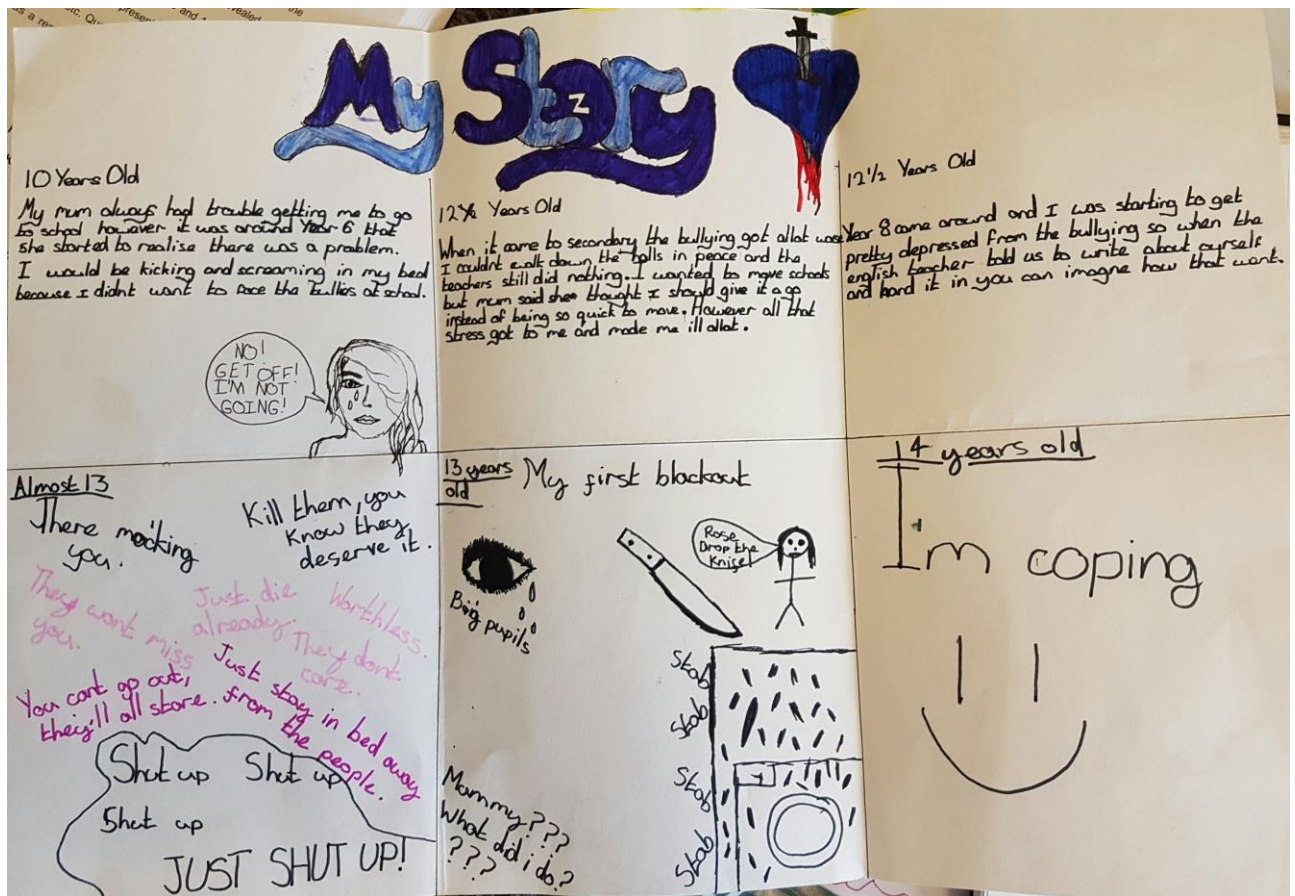 My Story
10 Years Old
My mum always had trouble getting me to go
to school however it was around Year 6 that
she started to realise there was a problem.
I would be kicking and screaming in my bed
because I didnt want to face the bullies at school.
NO!
GET OFF!
I'M NOT
GOING!
12½ Years Old
When it came to secondary the bullying got allot worse
I couldnt walk down the halls in peace and the
teachers still did nothing. I wanted to move schools
but mum said she thought I should give it a go
instead of being so quick to move. However all that
stress got to me and made me ill allot.
12½ Years Old
Year 8 came around and I was starting to get
pretty depressed from the bullying so when the
english teacher told us to write about ourself
and hand it in you can imagne how that went.
Almost 13
There mocking
you.
Kill them, you
know they
deserve it.
They wont miss
you.
Just die
already.
Worthless.
They dont
care.
You cant go out,
they'll all stare.
Just stay in bed away
from the people.
Shut up Shut up
Shut up
JUST SHUT UP!
13 years
old
My first blackout
Big pupils
Rose
Drop the
Knife!
Stab
Stab
Stab
Stab
Mammy???
What did i do?
???
14 years old
I'm coping